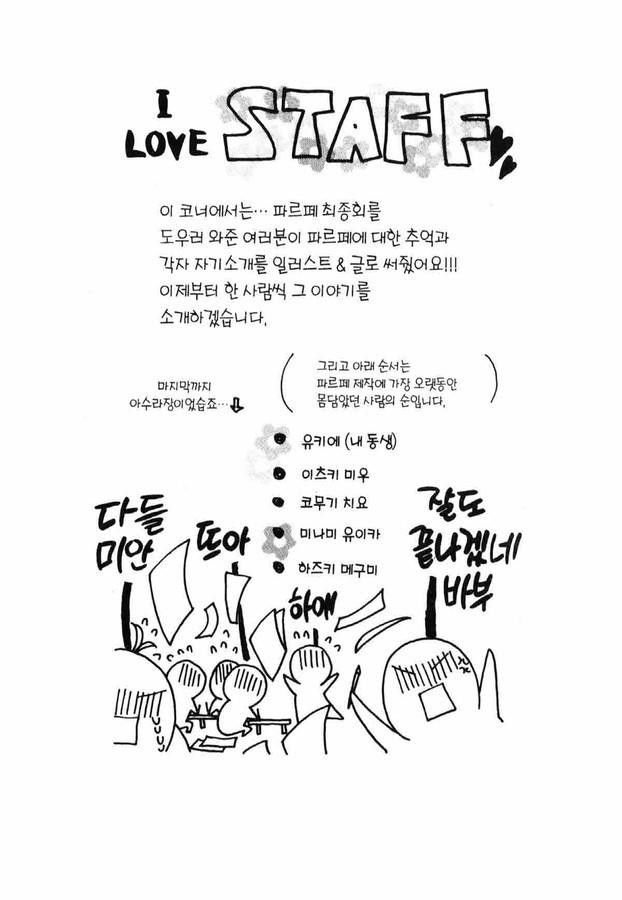 I
LOVE STAFF
이 코너에서는… 파르페 최종회를
도우러 와준 여러분이 파르페에 대한 추억과
각자 자기소개를 일러스트 & 글로 써줬어요!!!
이제부터 한 사람씩 그 이야기를
소개하겠습니다.
그리고 아래 순서는
파르페 제작에 가장 오랫동안
몸담았던 사람의 순입니다.
마지막까지
아수라장이었습죠…
유키에 (내 동생)
이츠키 미우
코무기 치요
미나미 유이카
하즈키 메구미
다들
미안
뜨아
하얘
잘도
끝나겠네
바부